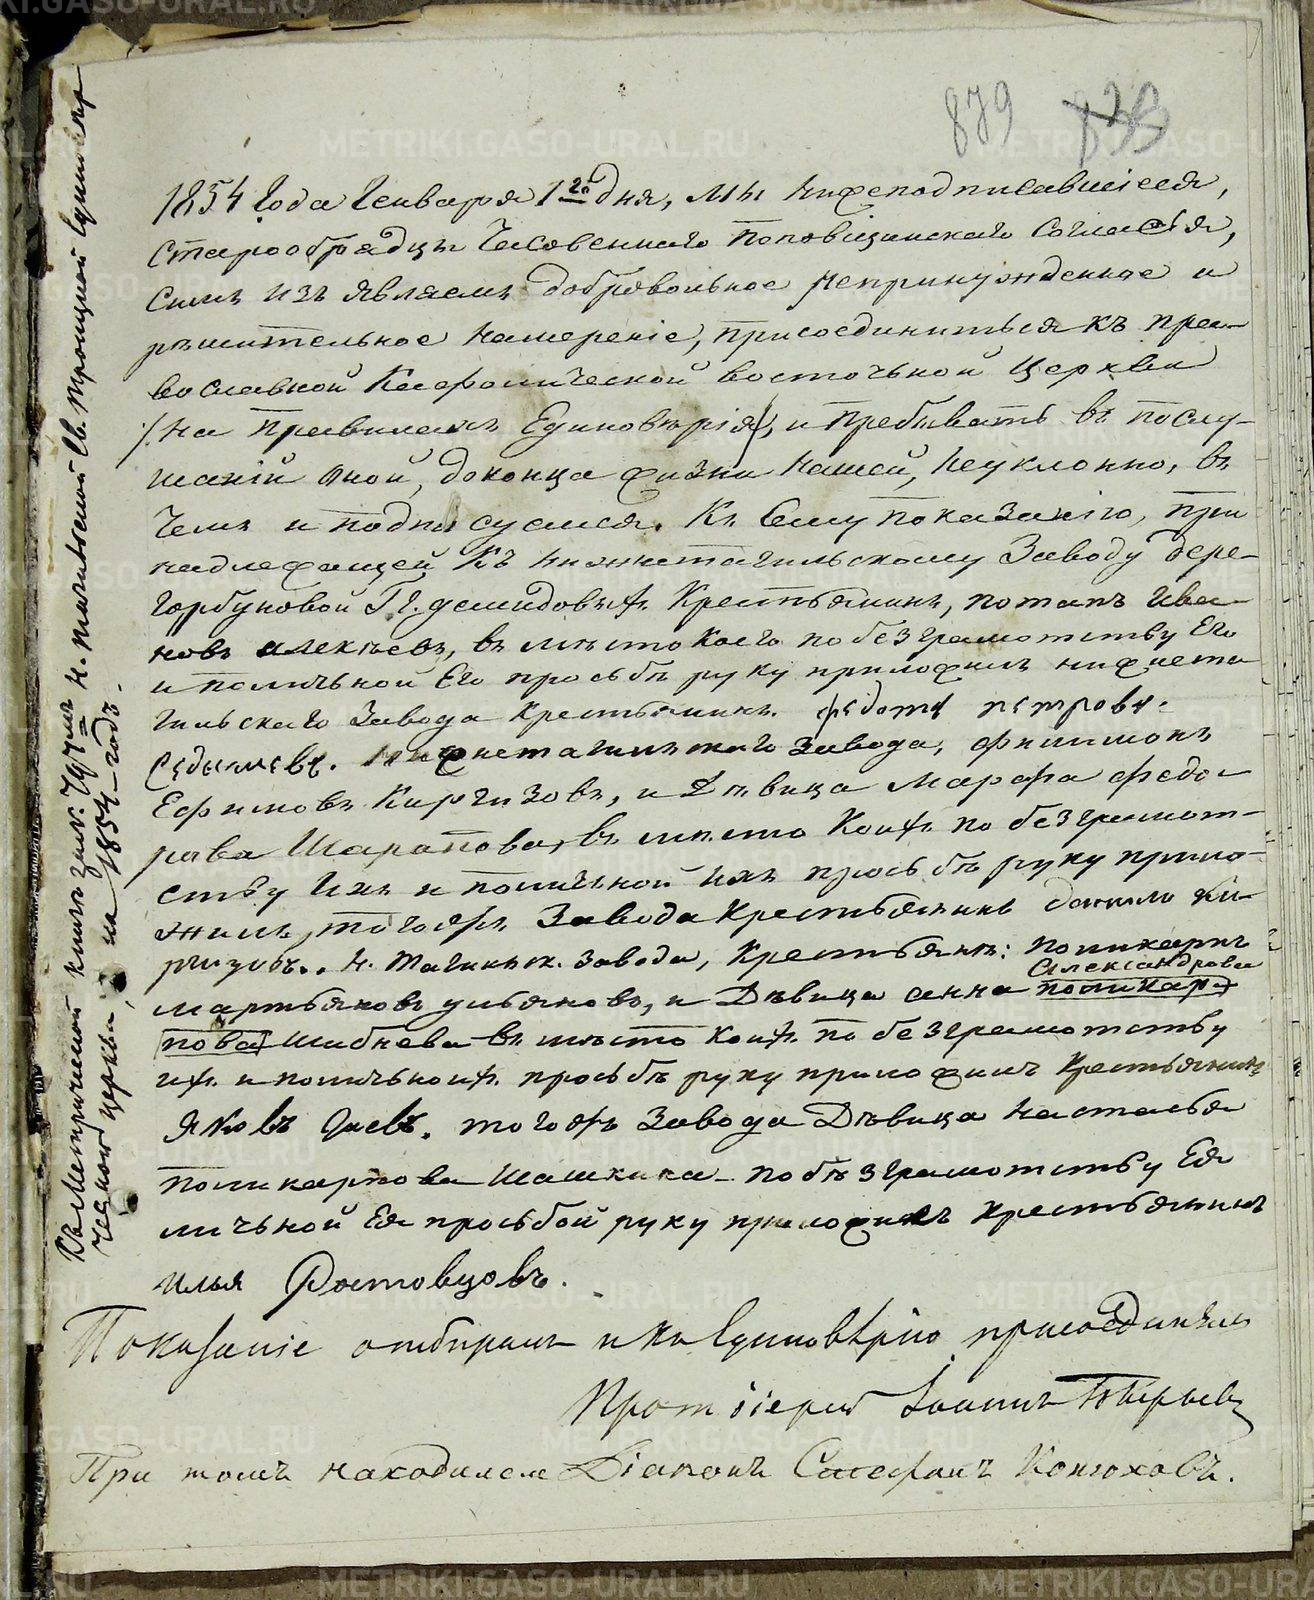 879 833
1854 Года Генваря 1го дня, мы нижеподписавшіеся,
старообрядцы Часовеннаго поповщинскаго согласія,
симъ изъ являемъ добровольное непринужденное и
решительное намереніе, присоединиться къ пра-
вославной Кафолической восточьной Церкви
/на Правилахъ Единоверія/, и пребывать въ послу-
шаніи оной, доконца жизни нашей, неуклонно, въ
чемъ и подписуемся. Къ сему показанію, при
надлежащей Къ нижнетагильскому Заводу дере-
Горбуновой Г.г. демидовыхъ Крестьянинъ, потапъ Ива-
новъ алексеевъ, въ место коего по безграмотству Его
и поличьной Его прозьбе руку приложилъ нижнета
гильскаго Завода крестьянинъ федотъ петровъ
Седышевъ. Нижнетагильскаго Завода, филимонъ
Ефимовъ Киргизовъ, и Девица Марфа федо-
рова Шарапова, въ место Коихъ по безграмот-
ству Ихъ и поличьной ихъ прозьбе руку прило-
жилъ, тогожъ Завода Крестьянинъ данило Ки-
ргизовъ. Н. Тагильск. завода, Крестьяне: поликарпъ
Александрова
мартьяновъ ульяновъ, и Девица анна поликар-
пова Шибнева въ место коихъ по безграмотству
ихъ и поличьноихъ прозьбе руку приложилъ Крестьянинъ
Яковъ Гаевъ. тогожъ Завода Девица Настасья
поликарпова Шашкина по безграмотству Ея
личьной Ея прозьбой руку приложилъ крестьянинъ
илья Ростовцовъ.
Показаніе отбиралъ и къ Единоверію присоединилъ
Протоіерей Іоаннъ
При томъ находился Діаконъ Стефанъ Конюховъ.
Къ Метричной книге Н. Тагильской Св. Троицкой Единовер
ческой церкви, на 1854-годъ.
METRIKI.GASO-URAL.RU